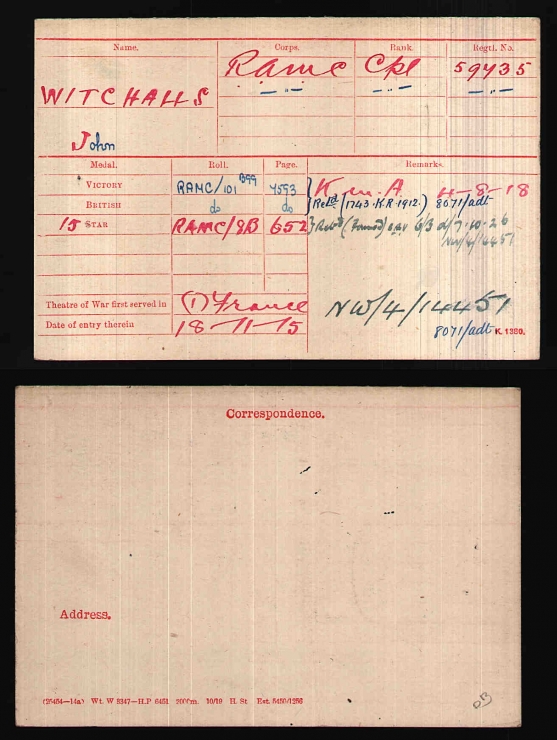 Name. Corps. Rank. Regtl. No.
RAMC Cpl 59435
WITCHALLS — " — — " — — " —
John
Medal. Roll. Page. Remarks.
VICTORY RAMC/101 B99 7593 K in A. 4-8-18
BRITISH do do Retd (1743.KR.1912.) 8071/adt
15 STAR RAMC/8B 652 6/3 d/7.10.26
NW/4/14451
Theatre of War first served in (1) France NW/4/14451
Date of entry therein 18-11-15 8071/adt K. 1380.
Correspondence.
Address.
(25454—14a) Wt. W 5347—H.P 6451 2000m. 10/19 H. St Est. 5450/1256